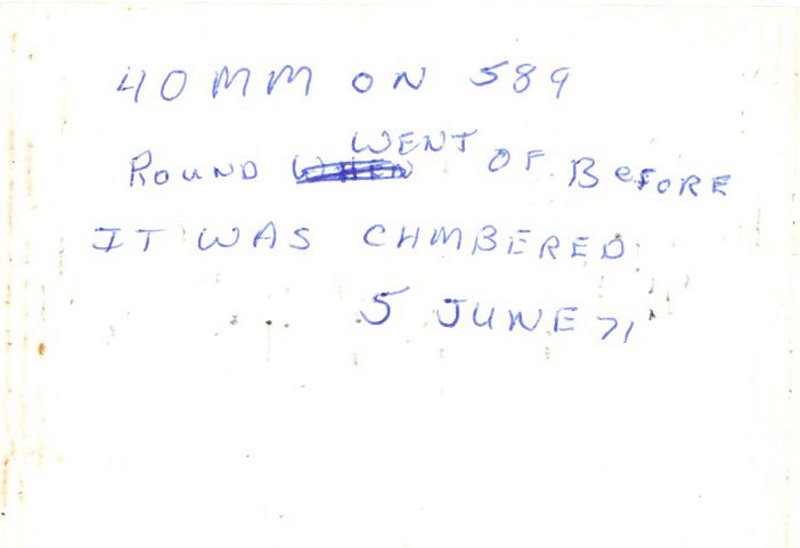 40MM ON 589
ROUND WENT OF BEFORE
IT WAS CHMBERED
5 JUNE 71